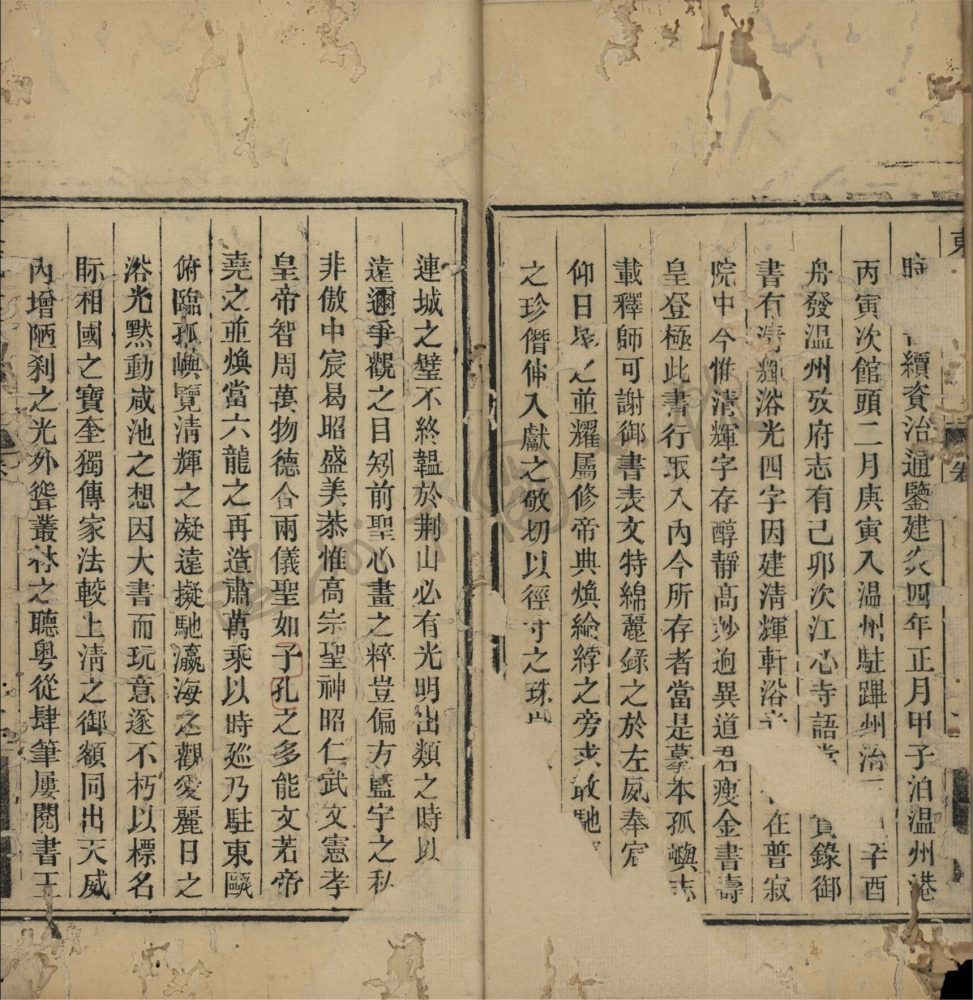 東
時續資治通鑑建炎四年正月甲子泊温州港
丙寅次館頭二月庚寅入温州駐蹕州治辛酉
舟發温州攷府志有己卯次江心寺語實錄御
書有清輝浴光四字因建清輝軒浴在普寂
院中今惟清輝字存醇靜高妙迥異道君瘦金書壽
皇登極此書行取入內今所存者當是摹本孤嶼志
載釋師可謝御書表文特綿麗錄之於左夙奉宸
仰日星之並耀屬修帝典煥綸綍之旁求敢馳
之珍僭伸入獻之敬切以徑寸之珠
連城之璧不終韞於荆山必有光明出類之時以
遠邇爭觀之目矧前聖心畫之粹豈偏方藍宇之私
非倣中宸曷昭盛美恭惟高宗聖神昭仁武文憲孝
皇帝智周萬物德合兩儀聖如子孔之多能文若帝
堯之並煥當六龍之再造肅萬乘以時廵乃駐東甌
俯臨孤嶼覽清輝之凝遠擬馳瀛海之觀愛麗日之
浴光默動咸池之想因大書而玩意遂不朽以標名
眎相國之寶奎獨傳家法較上清之御額同出天威
內增陋刹之光外聳叢林之聽粵從肆筆屢閱書王